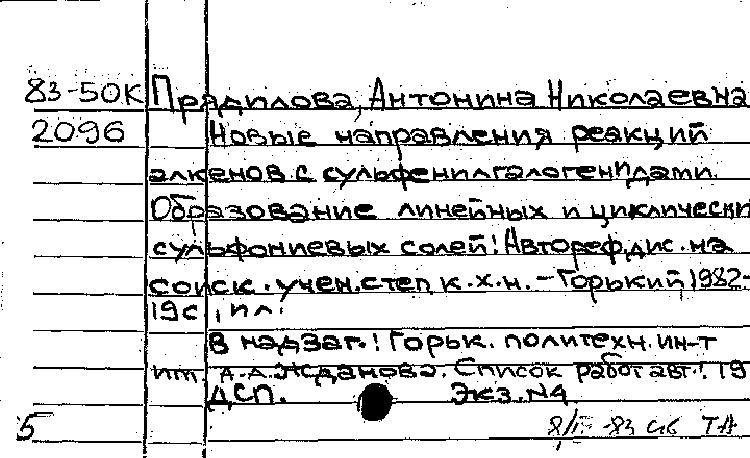 83-50К Прядилова, Антонина Николаевна
2096 Новые направления реакций
алкенов с сульфенилгалогенидами.
Образование линейных и циклически
сульфониевых солей! Автореф. дис. на
соиск. учен. степ к.х.н. – Горький, 1982-
19с, ил.
В надзаг.! Горьк. политехн. ин-т
им. А.А. Жданова. Список работ авт.! 19
ДСП. Экз. №4
5 -83